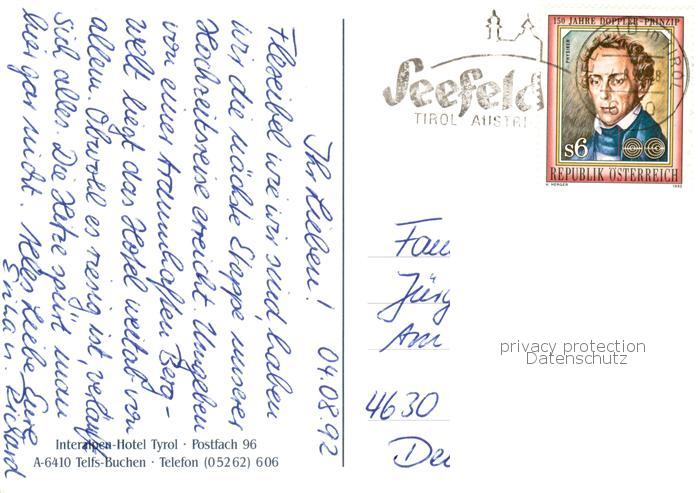 Ihr Lieben! 04.08.92
Flexibel wie wir sind, haben
wir die nächste Etappe unserer
Hochzeitsreise erreicht. Umgeben
von einer traumhaften Berg-
welt liegt das Hotel weitab von
allem. Obwohl es riesig ist, verläuft
sich alles. Die Hitze spürt man
hier gar nicht. Alles Liebe Eure
Richard
Interalpen-Hotel Tyrol · Postfach 96
A-6410 Telfs-Buchen · Telefon (05262) 606
Seefeld
TIROL AUSTRI
150 JAHRE DOPPLER-PRINZIP
PHYSIKER
s6
REPUBLIK ÖSTERREICH
1992
Fam
Jürg
Am
4630
Deu
privacy protection
Datenschutz